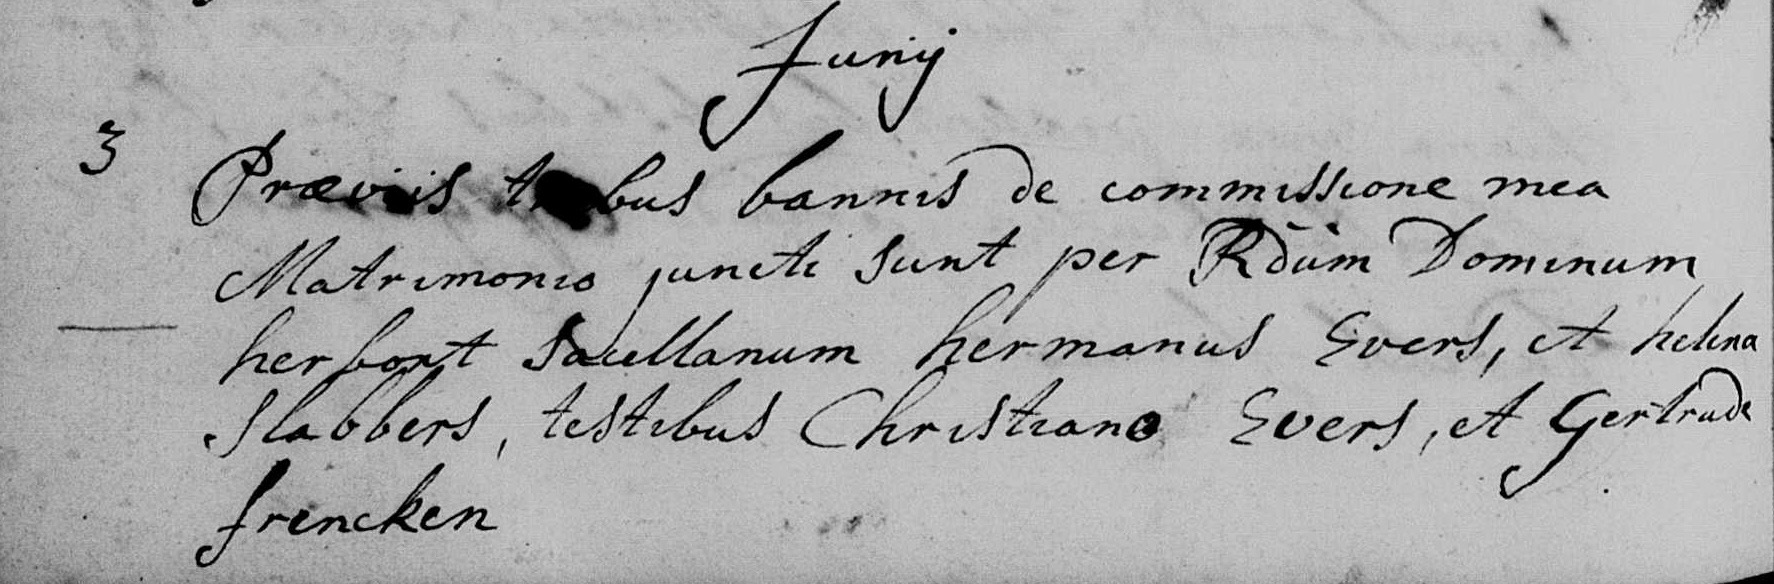 Junij
3 Præviis tribus bannis de commissione mea
Matrimonio juncti sunt per Rdum Dominum
herbort Sacellanum hermanus Evers, et helena
Slabbers, testibus Christiano Evers, et Gertrude
frencken